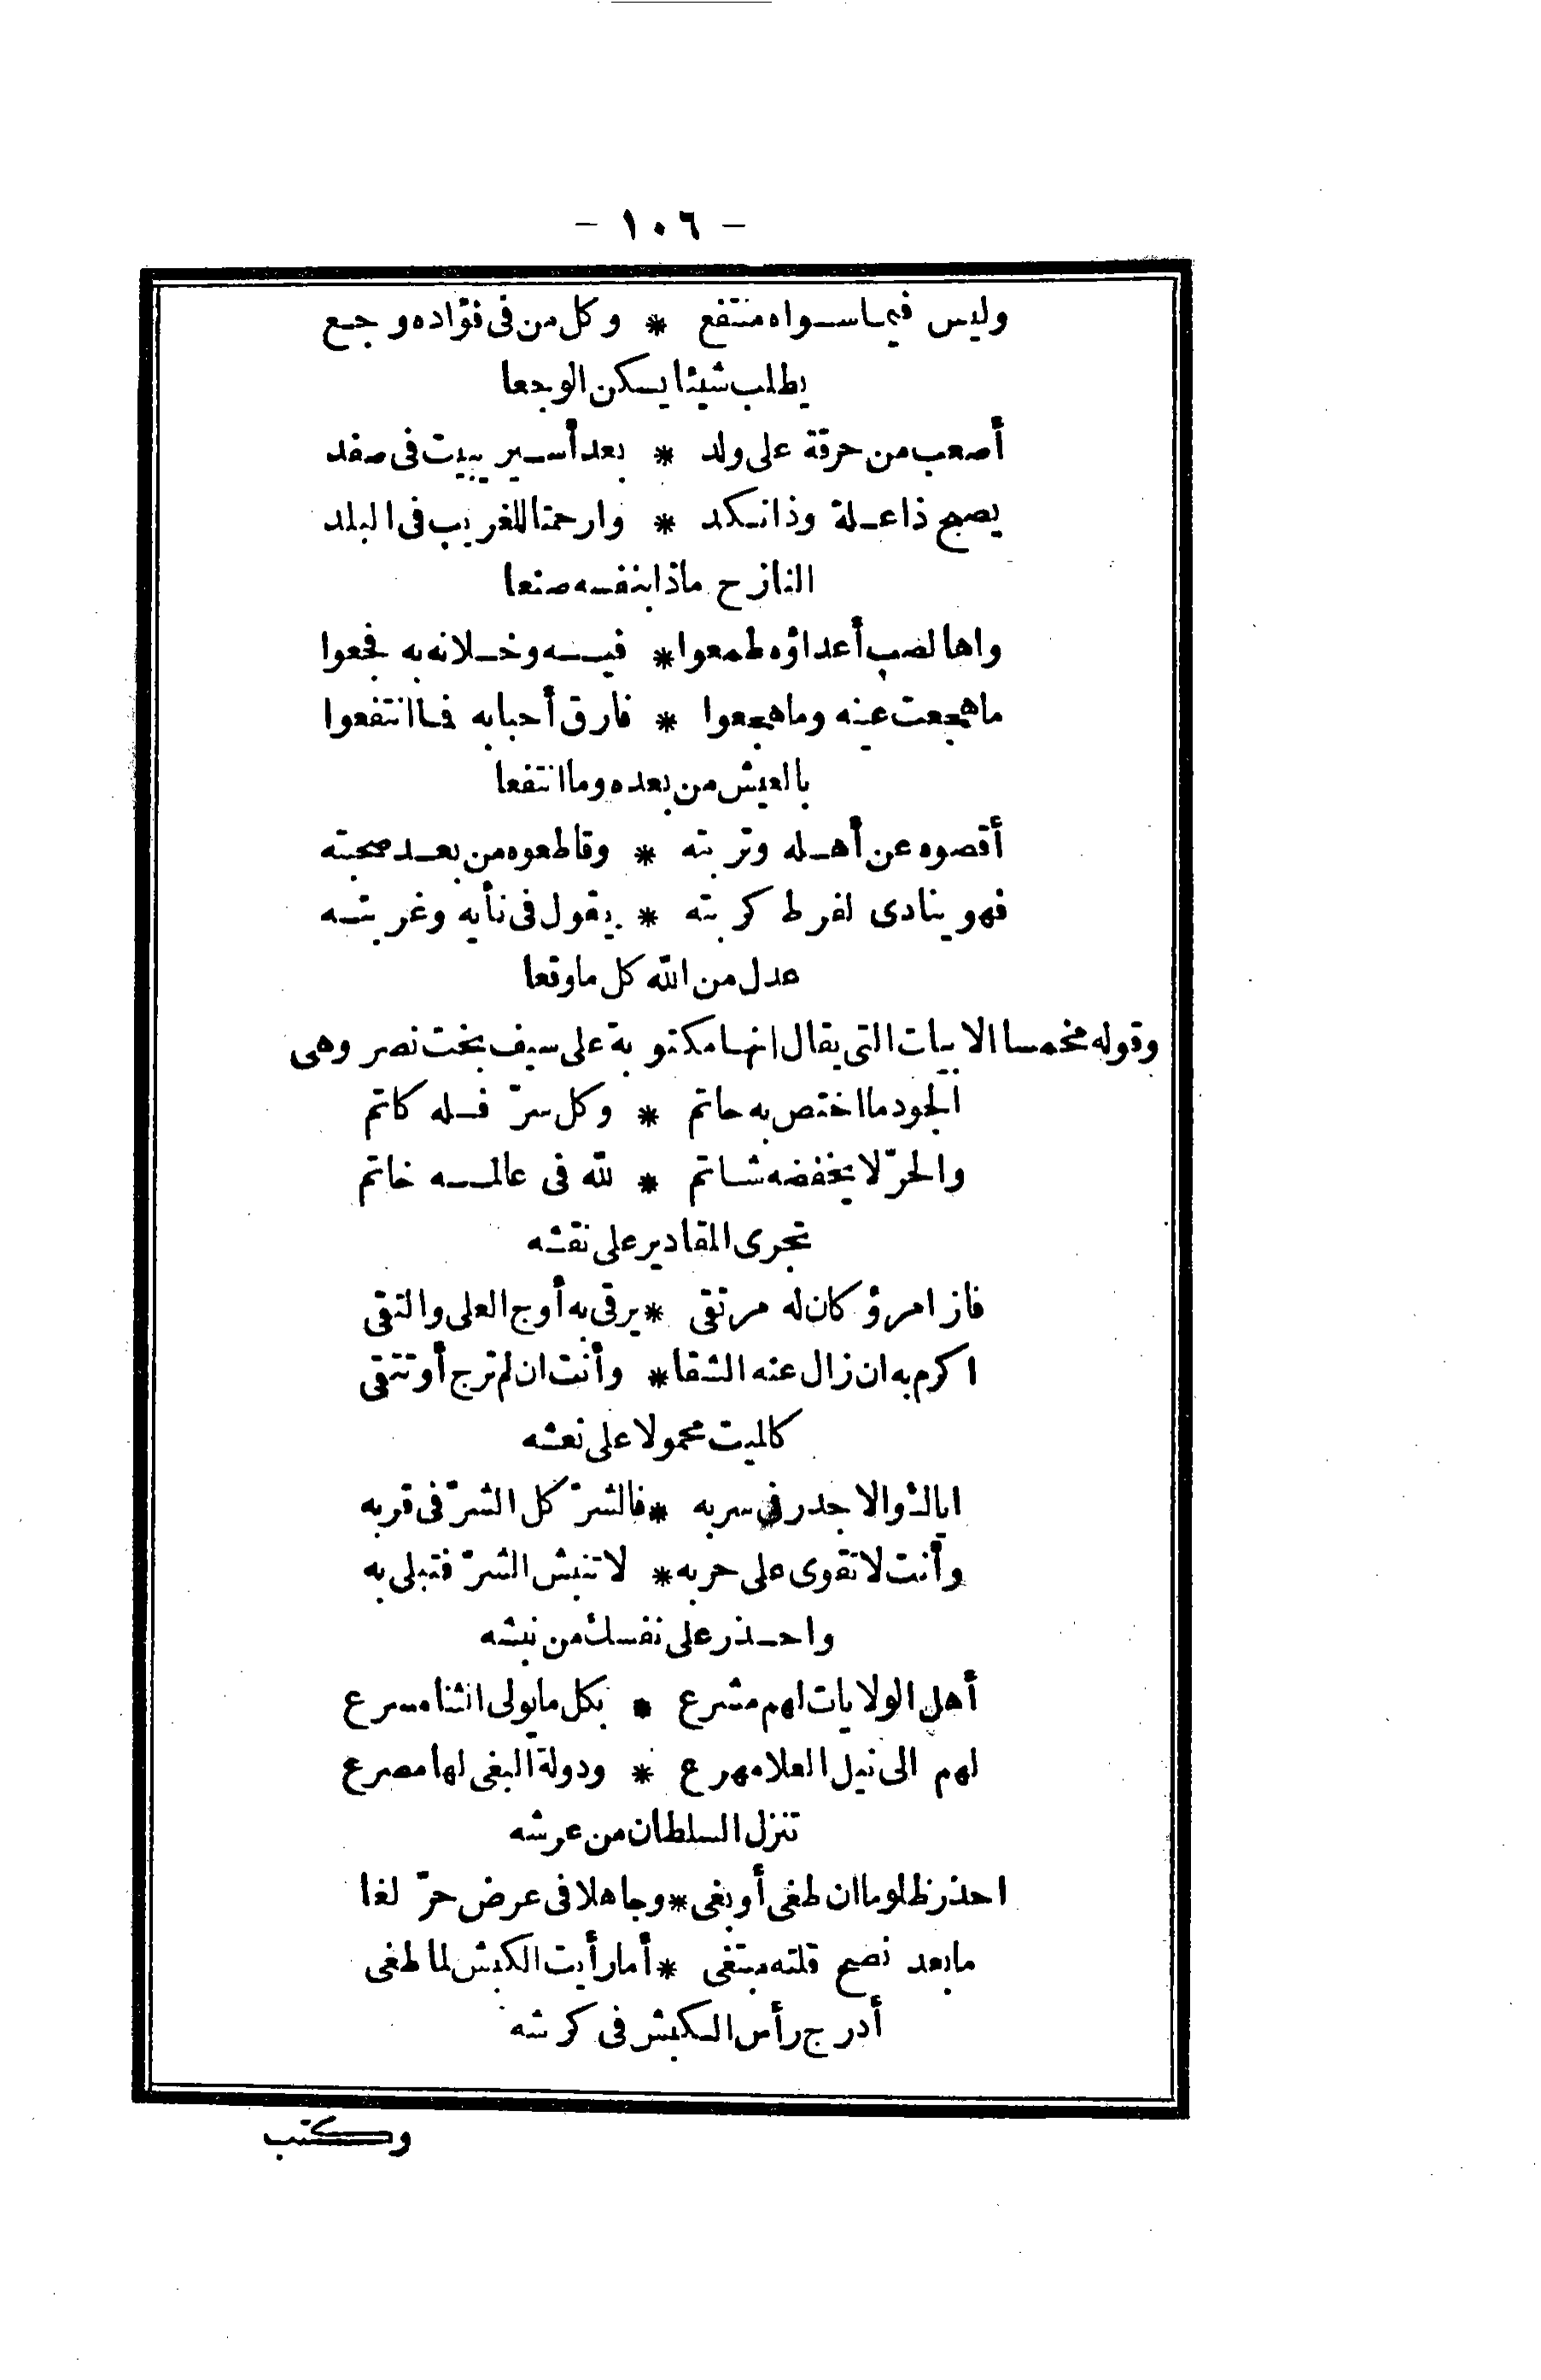 - ١٠٦ -
وليس فيما سواه منتفع * وكل من فى فؤاده وجع
يطلب شيئا يسكن الوجعا
أصعب من حرقة على ولد * بعد أسير يبيت فى صفد
يصبح ذا علة وذا نكد * وارحمتا للغريب فى البلد
النازح ماذا بنفسه صنعا
واها لصب أعداؤه طمعوا * فيه وخلانه به فجعوا
ما هجعت عينه وما هجعوا * فارق أحبابه فما انتفعوا
بالعيش من بعده وما انتفعا
أقصوه عن أهله وتربته * وقاطعوه من بعد صحبته
فهو ينادى لفرط كربته * يقول فى نأيه وغربته
عدل من الله كل ما وقعا
وقوله مخمسا الابيات التى يقال انها مكتوبة على سيف بخت نصر وهى
الجود ما اختص به حاتم * وكل سرّ فله كاتم
والحرّ لا يخفضه شاتم * لله فى عالمه خاتم
تجرى المقادير على نقشه
فاز امرؤ كان له مرتقى * يرقى به أوج العلى والتقى
اكرم به ان زال عنه الشقا * وأنت ان لم ترج أو تتقى
كالميت محمولا على نعشه
اياك والاجدر فى سربه * فالشرّ كل الشرّ فى قربه
وأنت لا تقوى على حربه * لا تنبش الشرّ فتبلى به
واحذر على نفسك من نبشه
أهل الولايات لهم مشرع * بكل ما يولى الثنا مسرع
لهم الى نيل العلا مهرع * ودولة البغى لها مصرع
تنزل السلطان من عرشه
احذر ظلوما ان طغى أو بغى * وجاهلا فى عرض حرّ لغا
ما بعد نصح قلته مبتغى * أما رأيت الكبش لما طغى
أدرج رأس الكبش فى كرشه
وكتب